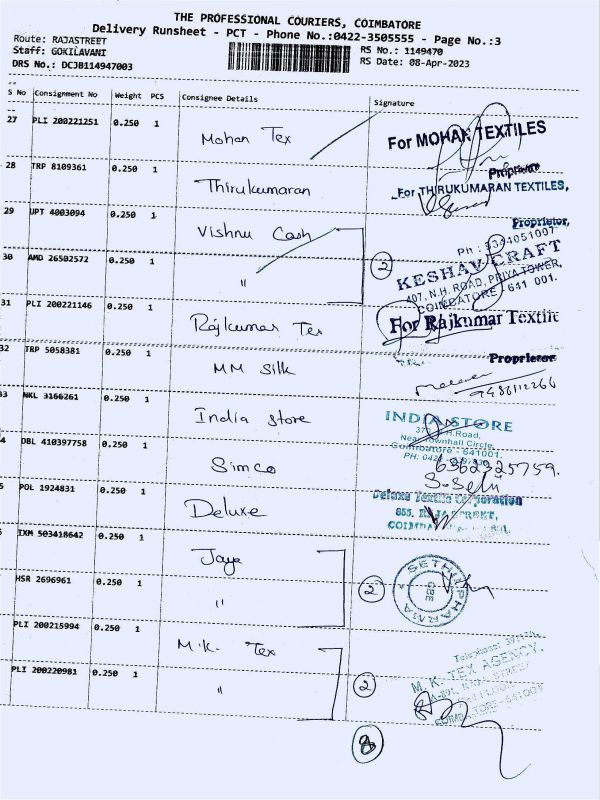 THE PROFESSIONAL COURIERS, COIMBATORE
Delivery Runsheet - PCT - Phone No.:0422-3505555 - Page No.:3
Route: RAJASTREET
RS No.: 1149470
Staff: GOKILAVANI
RS Date: 08-Apr-2023
DRS No.: DCJB114947003
S No Consignment No Weight PCS Consignee Details Signature
27 PLI 200221251 0.250 1 Mohan Tex For MOHAN TEXTILES
Proprietor
28 TRP 8109361 0.250 1 Thirukumaran For THIRUKUMARAN TEXTILES,
Proprietor,
29 UPT 4003094 0.250 1 Vishnu Cash
30 AMD 26502572 0.250 1 "
2
Ph : 9344051007
KESHAV CRAFT
407, N.H. ROAD, PRIYA TOWER,
COIMBATORE - 641 001.
31 PLI 200221146 0.250 1 Rajkumar Tex For Rajkumar Textile
Proprietor
32 TRP 5058381 0.250 1 MM Silk
9486112266
33 NKL 3166261 0.250 1 India store INDIA STORE
Road,
Near Townhall Circle,
Coimbatore - 641001.
4 DBL 410397758 0.250 1 Simco 6362325759.
S. Selvi
5 POL 1924831 0.250 1 Deluxe Deluxe Textile Corporation
855, RAJA STREET,
6 IXM 503418642 0.250 1 Jaya
HSR 2696961 0.250 1 "
2
SETHU PHARMA
CBE
PLI 200215994 0.250 1 M.K. Tex
PLI 200220981 0.250 1 "
2
M. K. TEX AGENCY.
COIMBATORE - 641001
8